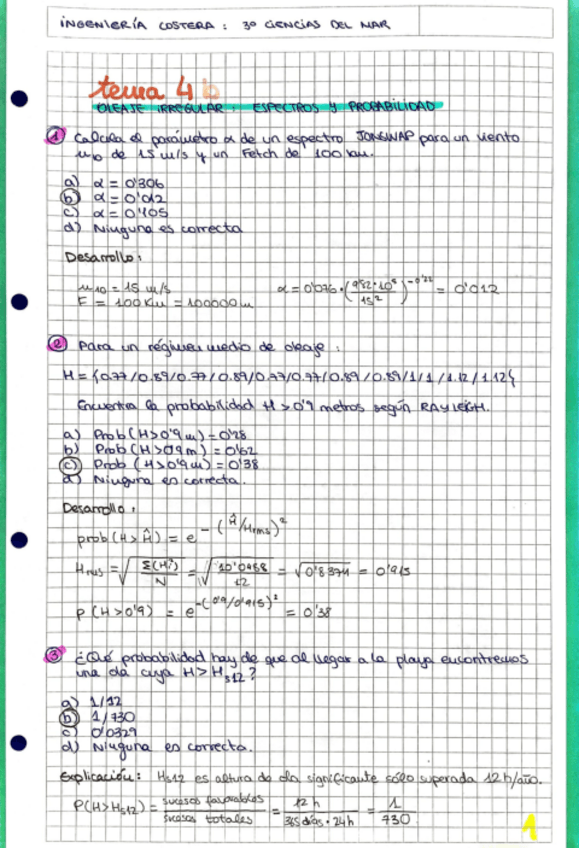 INGENIERÍA COSTERA : 3º CIENCIAS DEL MAR
tema 4 b
OLEAJE IRREGULAR: ESPECTROS Y PROBABILIDAD
① Calcula el parámetro α de un espectro JONSWAP para un viento
u10 de 15 m/s y un Fetch de 100 km.
a) α = 0'306
b) α = 0'012
c) α = 0'105
d) Ninguna es correcta
Desarrollo:
u10 = 15 m/s
F = 100 Km = 100000 m
α = 0'076 · (9'82·10⁵ / 15²)^-0'22 = 0'012
② Para un régimen medio de oleaje:
H = {0.77/0.89/0.77/0.89/0.77/0.77/0.89/0.89/1/1/1.12/1.12}
Encuentra la probabilidad H > 0'9 metros según RAYLEIGH.
a) Prob (H>0'9 m) = 0'28
b) Prob (H>0'9 m) = 0'62
c) Prob (H>0'9 m) = 0'38
d) Ninguna es correcta.
Desarrollo:
prob (H > Ĥ) = e^-(Ĥ/Hrms)²
Hrms = √(Σ(Hi²)/N) = √(10'0458/12) = √0'8371 = 0'915
P (H > 0'9) = e^-(0'9/0'915)² = 0'38
③ ¿Qué probabilidad hay de que al llegar a la playa encontremos
una ola cuya H > Hs12?
a) 1/12
b) 1/730
c) 0'0329
d) Ninguna es correcta.
Explicación: Hs12 es altura de ola significante sólo superada 12h/año.
P(H>Hs12) = sucesos favorables / sucesos totales = 12 h / 365 días · 24h = 1/730
1